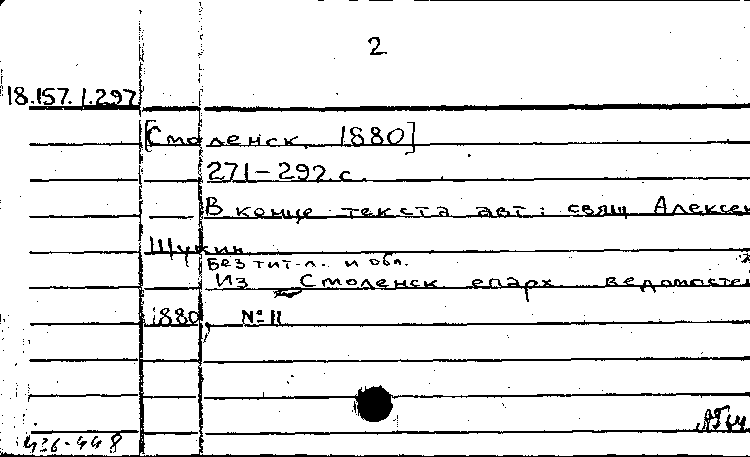 2
18.157.1.297
[Смоленск, 1880]
271-292 с.
В конце текста авт: свящ Алексей
Щукин
Без тит-л. и обл.
Из Смоленск епарх ведомостей
1880, № 11
436-448